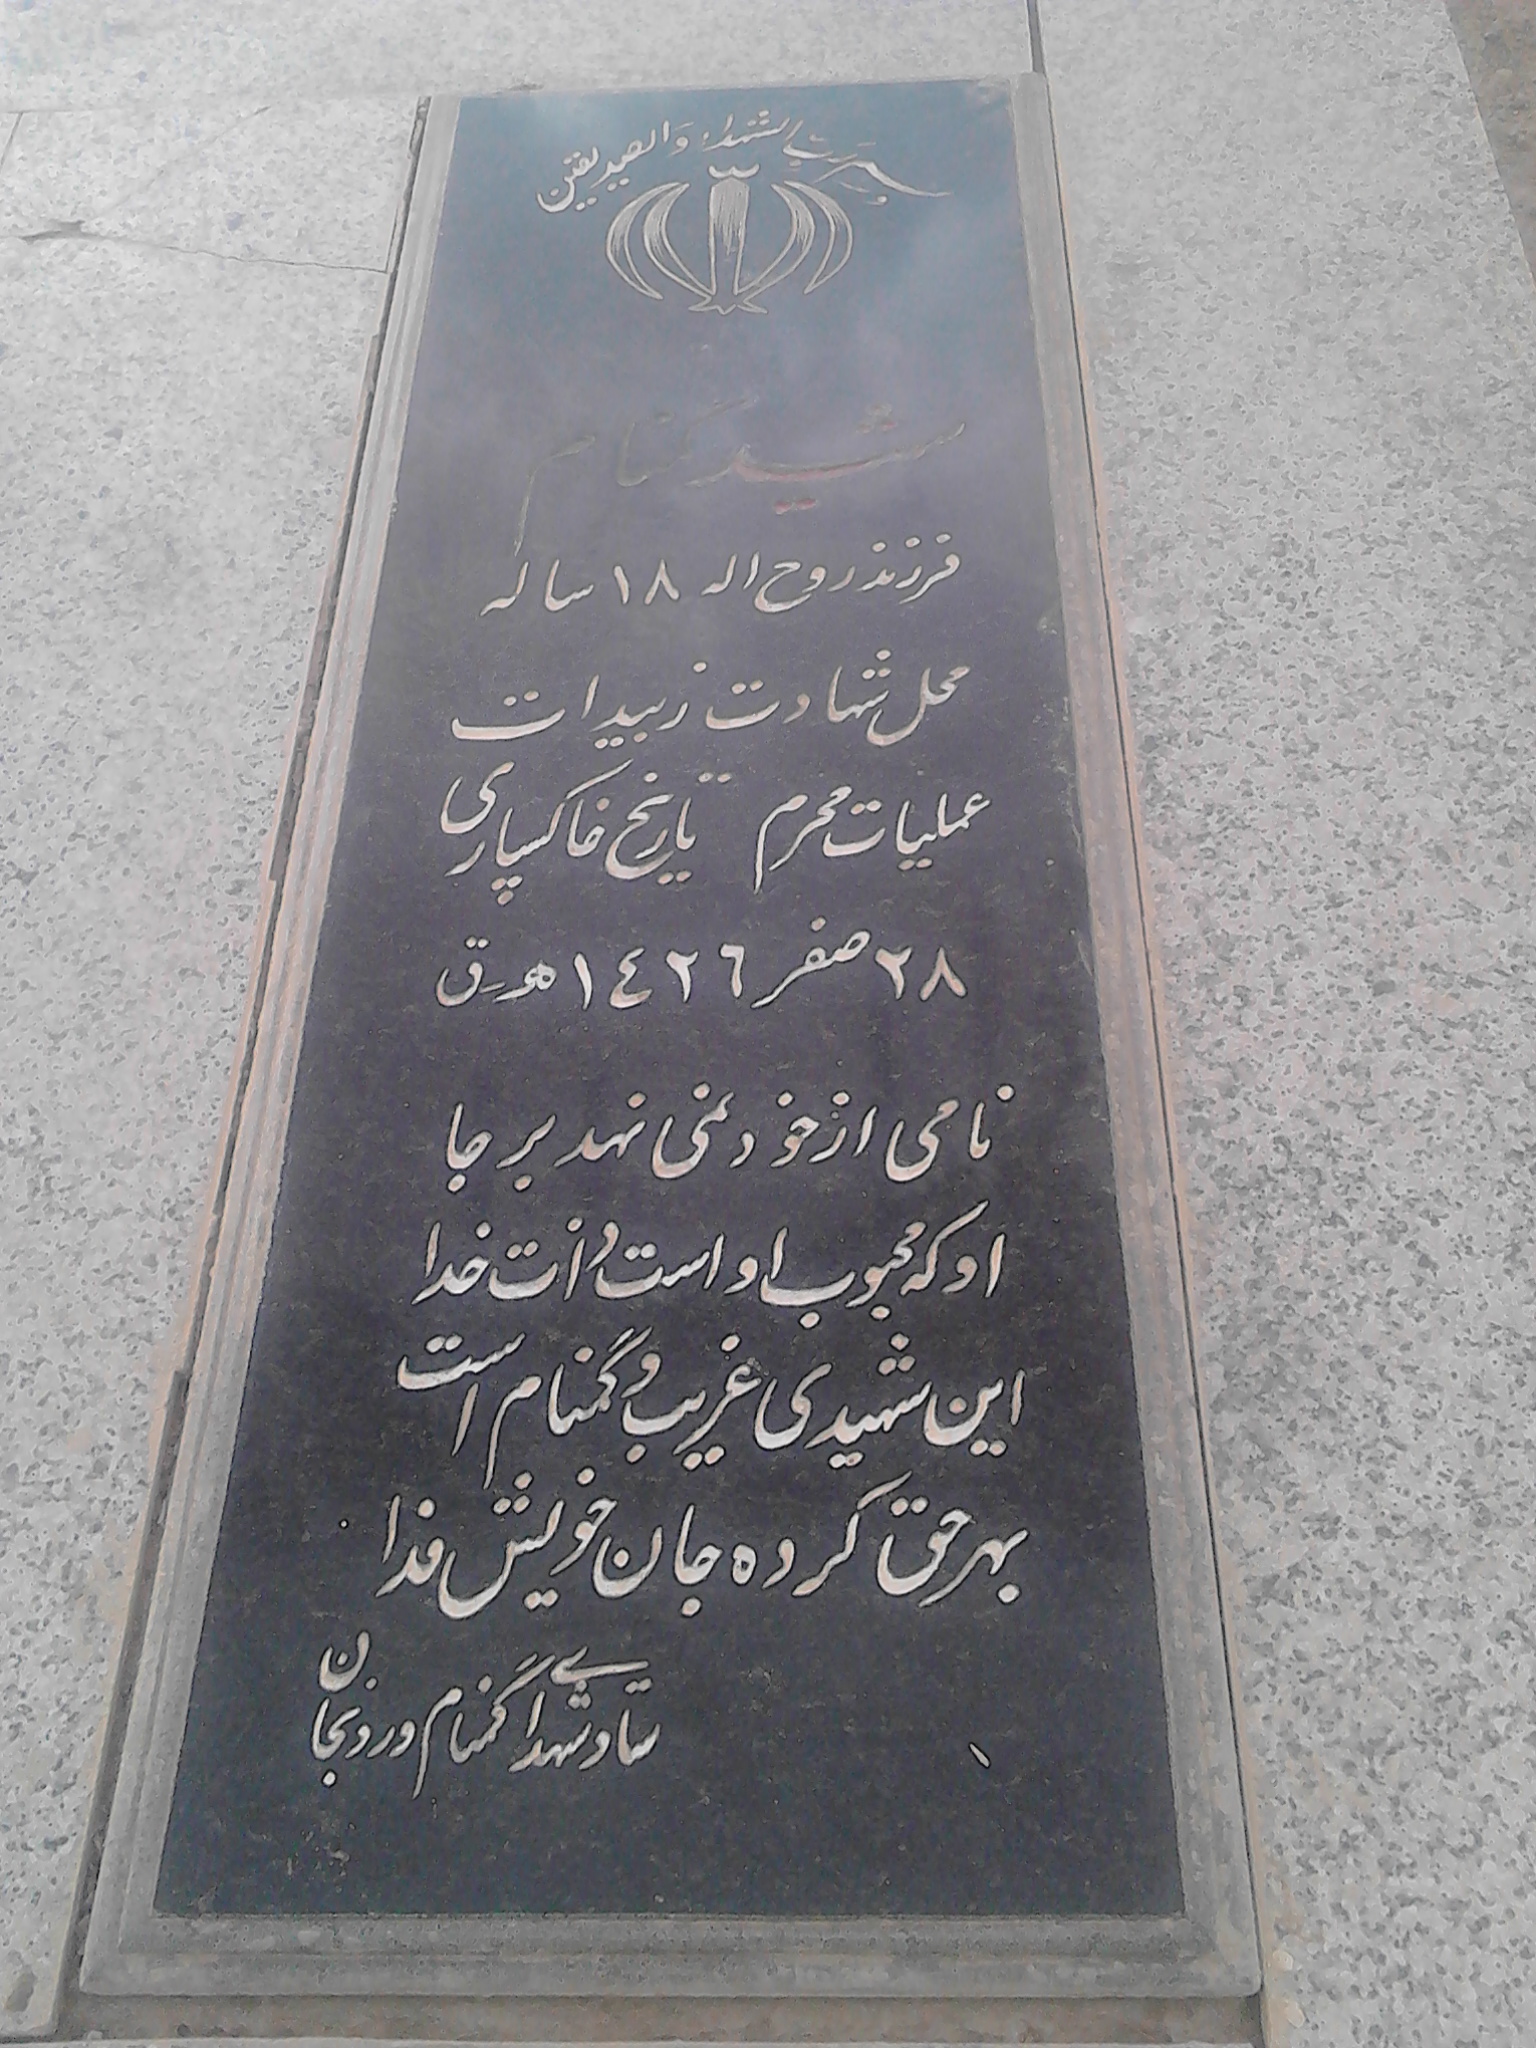 بسم رب الشهداء والصدیقین
شهید گمنام
فرزند روح اله ۱۸ ساله
محل شهادت زبیدات
عملیات محرم تاریخ خاکسپاری
۲۸ صفر ۱٤۲٦ هـ.ق
نامی از خود نمی نهد بر جا
او که محبوب او است ذات خدا
این شهیدی غریب و گمنام است
بهر حق کرده جان خویش فدا
ستاد شهدای گمنام وردنجان
۱